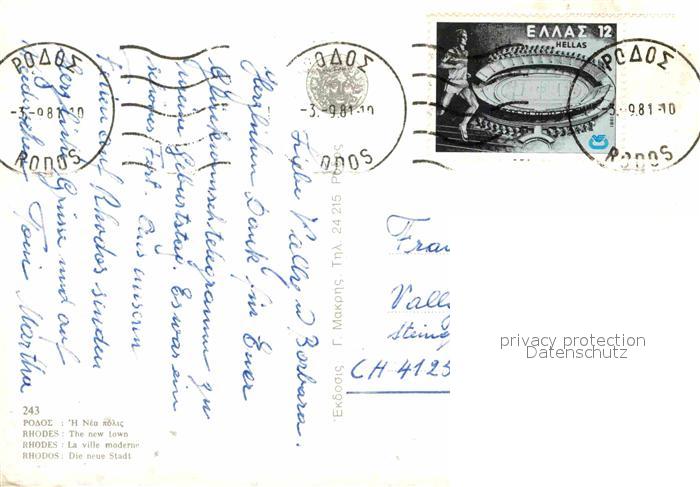 ΡΟΔΟΣ
-3.-9.81-10
RODOS
ΡΟΔΟΣ
-3.-9.81-10
RODOS
ΕΛΛΑΣ 12
HELLAS
1981
ΡΟΔΟΣ
-3.-9.81-10
RODOS
Liebe Vally u Barbara.
Herzlichen Dank für Euer
Glückwunschtelegramm zu
Geburtstag. Es war ein
Fest. Aus unseren
Ferien auf Rhodos senden
Grüsse und auf
Toni Martha
Εκδοσις Γ. Μακρης Τηλ. 24 215 Ρόδος
Frau
Vally
Stein
CH 4125
privacy protection
Datenschutz
243
ΡΟΔΟΣ : Ἡ Νέα πόλις
RHODES : The new town
RHODES : La ville moderne
RHODOS : Die neue Stadt